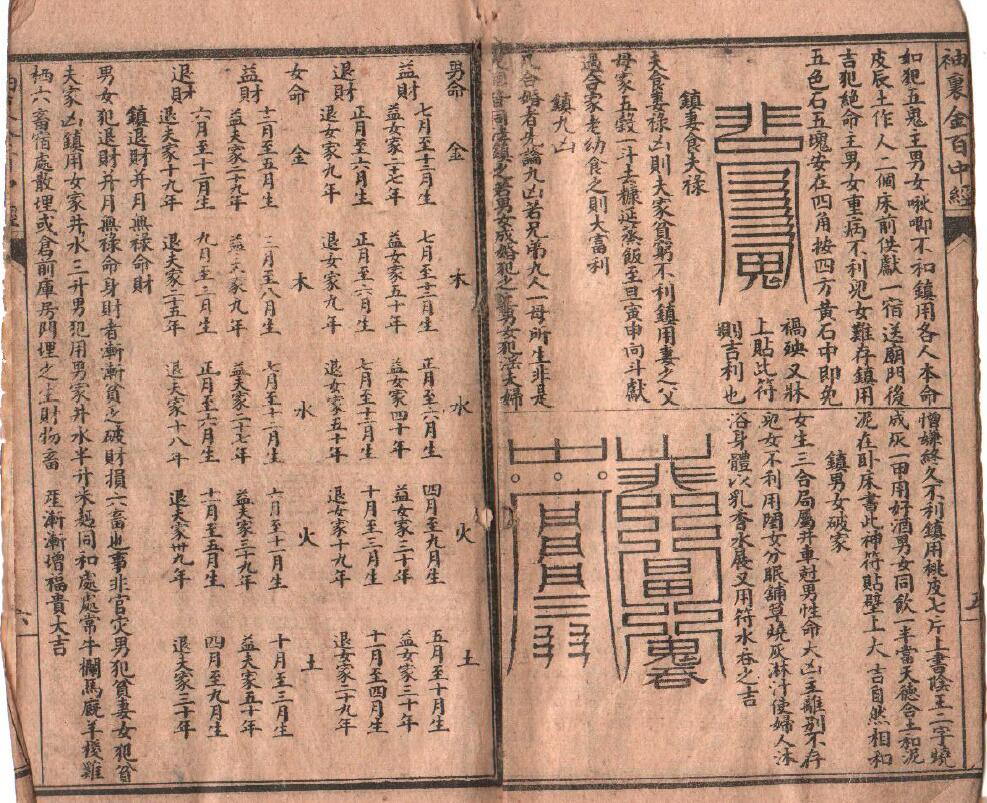 袖裏金百中經
五
如犯五鬼主男女啾唧不和鎮用各人本命
皮辰土作人二個床前供獻一宿送廟門後
吉犯絕命主男女重病不利兒女難存鎮用
五色石五塊安在四角按四方黃石中即免
禍殃又牀
上貼此符
則吉利也
鎮妻食夫祿
夫食妻祿凶則夫家貧窮不利鎮用妻之父
母家五穀一斗去糠延蒸飯至旦寅申向斗獻
過合家老幼食之則大富利
鎮九凶
凡合婚者先論九凶若兄弟九人一母所生非是
憎嫌終久不利鎮用桃皮七斤上書陰王二字燒
成灰一甲用好酒男女同飲一半當天德合土和泥
泥在卧床書此神符貼壁上大吉自然相和
鎮男女破家
女生三合局屬井車尅男性命大凶主離別不存
兒女不利用閨女分眠舖草燒灰淋汁使婦人沐
浴身體以乳香水展又用符水吞之吉
男命 金 木 水 火 土
益財 七月至十二月生 七月至十二月生 正月至六月生 四月至九月生 五月至十月生
益女家二七年 益女家五十年 益女家四十年 益女家三十年 益女家三十年
退財 正月至六月生 正月至六月生 七月至十二月生 十月至三月生 十一月至四月生
退女家九年 退女家九年 退女家五十年 退女家十九年 退女家二十九年
女命 金 木 水 火 土
益財 十二月至五月生 三月至八月生 七月至十二月生 六月至十一月生 十月至三月生
益夫家二十九年 益夫家九年 益夫家二十七年 益夫家二十九年 益夫家五十年
退財 六月至十一月生 九月至二月生 正月至六月生 十二月至五月生 四月至九月生
退夫家十九年 退夫家三十五年 退夫家十八年 退夫家卅九年 退夫家三十年
鎮退財并月無祿命財
男女犯退財并月無祿命身財者漸漸貧乏破財損六畜也事非官灾男犯貧妻女犯貧
夫家凶鎮用女家井水三升男犯用男家井水半升米麪同和處處常牛欄馬厩羊棧雞
栖六畜宿處散埋或倉前庫房門埋之主財物畜產漸漸增福貴大吉
六